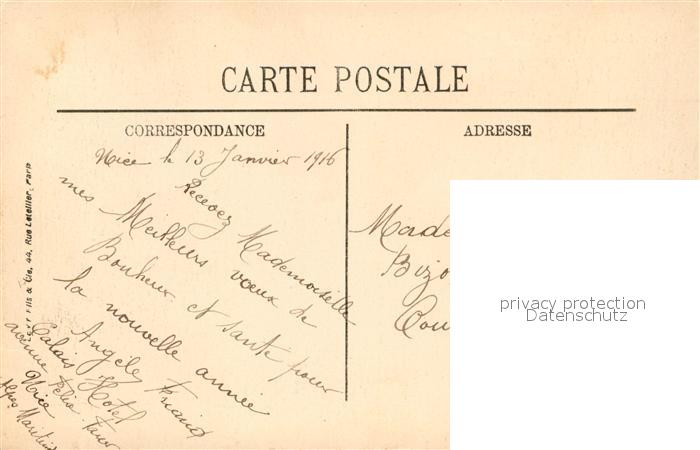 CARTE POSTALE
CORRESPONDANCE
ADRESSE
Nice le 13 Janvier 1916
Recevez Mademoiselle
mes Meilleurs vœux de
Bonheur et santé pour
la nouvelle année
Angèle
Calais Hotel
avenue Félix Faure
Nice
Alpes Maritimes
Fils & Cie, 44, Rue Letellier, Paris
Made
Bizo
Cou
privacy protection
Datenschutz